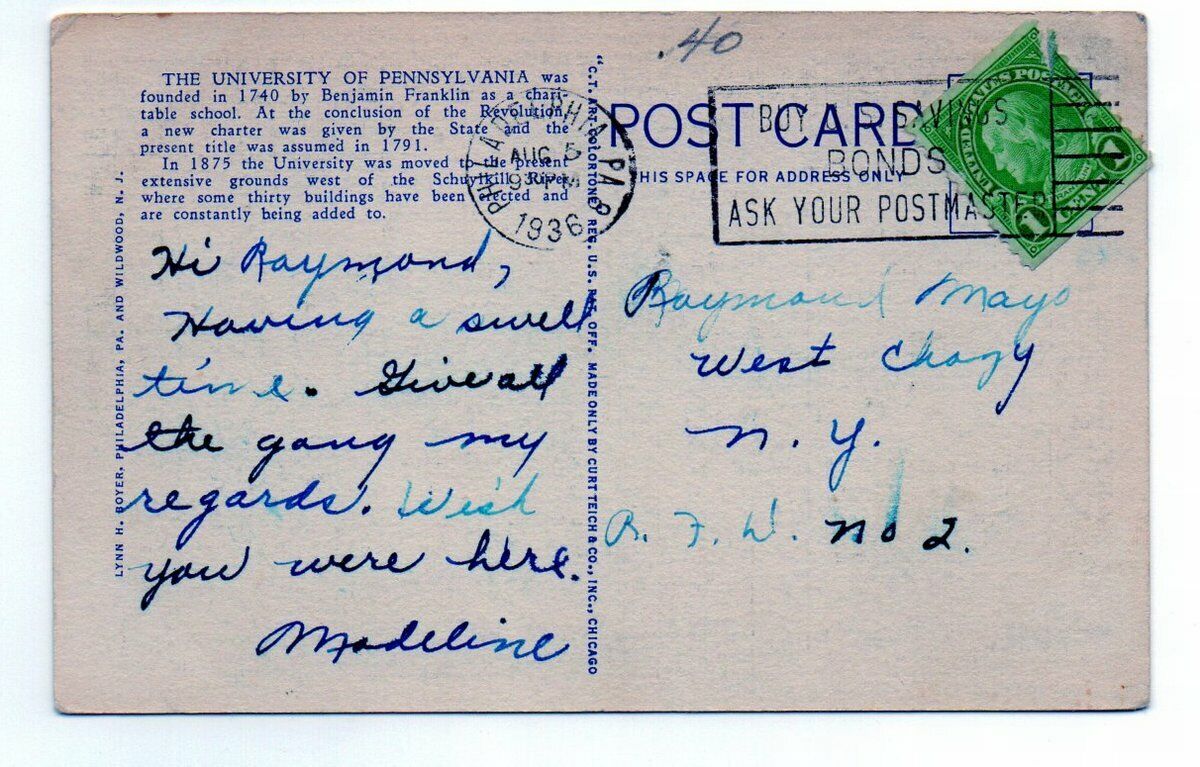 .40
THE UNIVERSITY OF PENNSYLVANIA was
founded in 1740 by Benjamin Franklin as a chari-
table school. At the conclusion of the Revolution,
a new charter was given by the State and the
present title was assumed in 1791.
In 1875 the University was moved to the present
extensive grounds west of the Schuylkill River
where some thirty buildings have been erected and
are constantly being added to.
LYNN H. BOYER, PHILADELPHIA, PA. AND WILDWOOD, N. J.
Hi Raymond,
Having a swell
time. Give all
the gang my
regards. Wish
you were here.
Madeline
"C.T. ART-COLORTONE" REG. U.S. PAT. OFF. MADE ONLY BY CURT TEICH & CO., INC., CHICAGO
PHILADELPHIA, PA.
AUG 5
930 PM
1936
POST CARD
THIS SPACE FOR ADDRESS ONLY
BUY U.S. SAVINGS
BONDS
ASK YOUR POSTMASTER
UNITED STATES POSTAGE
1 1
Raymond Mayo
West Chazy
N. Y.
R. F. D. No 2.